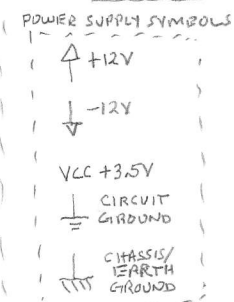 POWER SUPPLY SYMBOLS
+12V
-12V
VCC +3.5V
CIRCUIT
GROUND
CHASSIS/
EARTH
GROUND